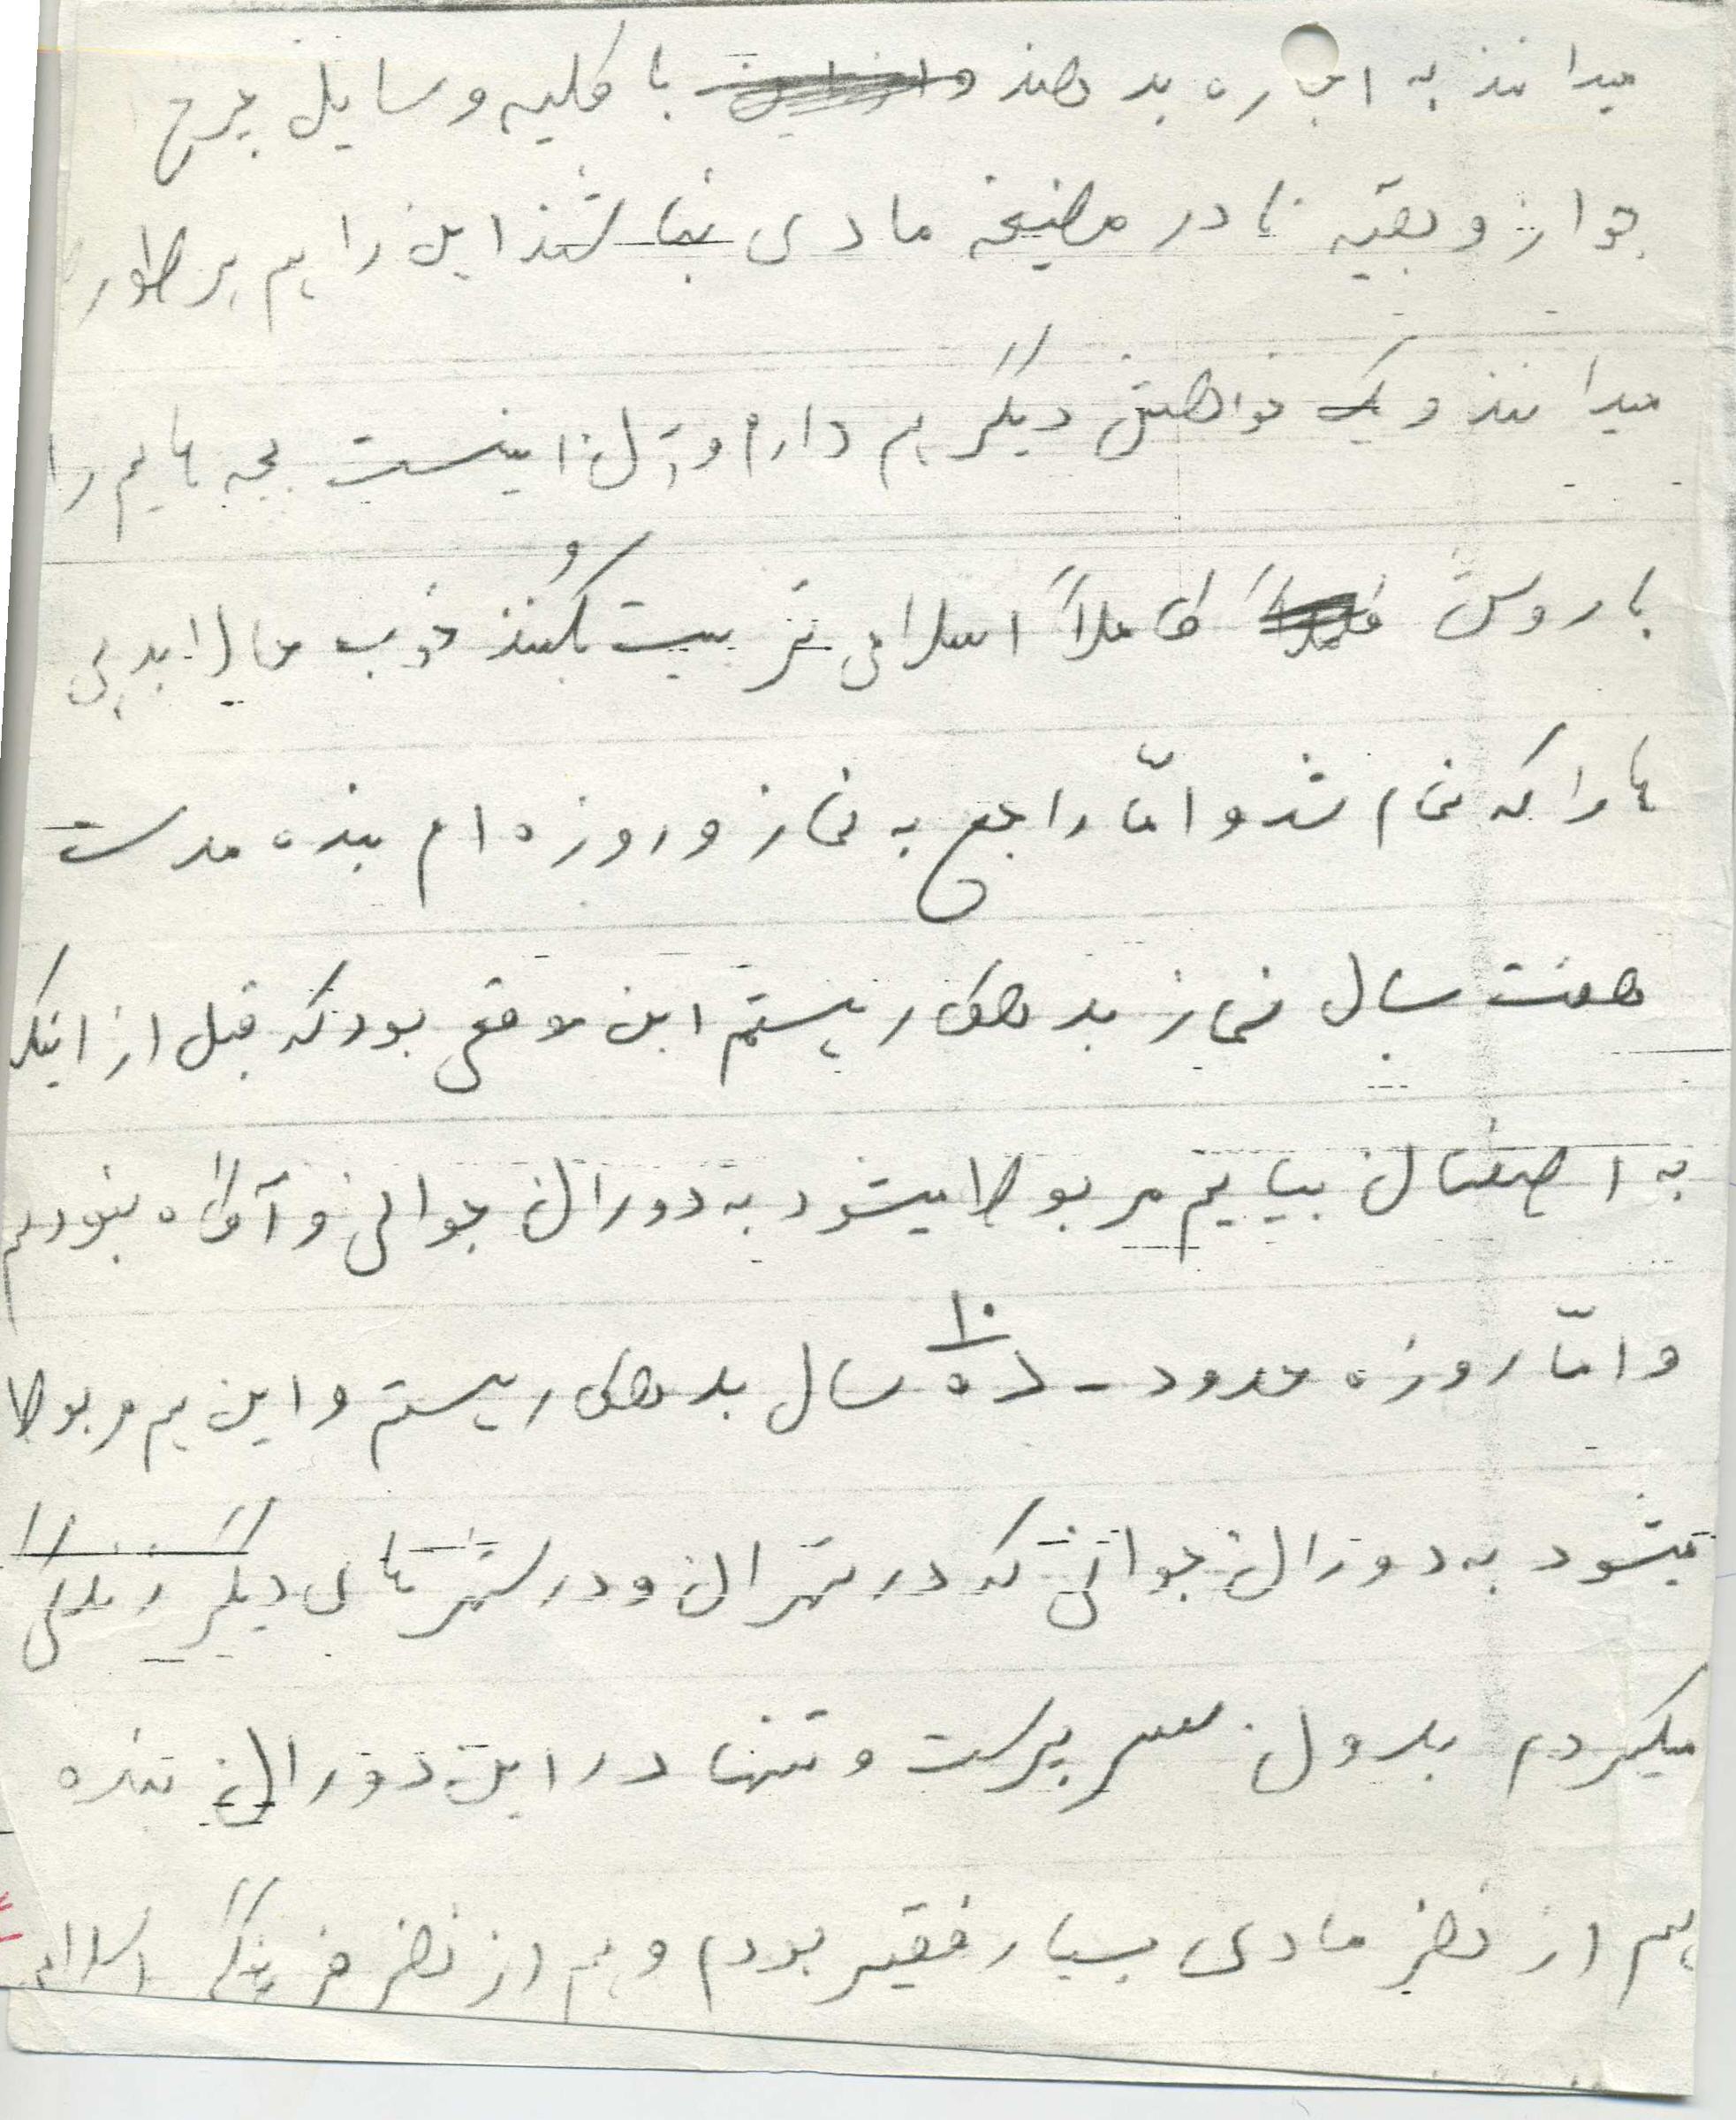 میدانند به اجاره بدهند با کلیه وسایل چرخ
جواز و بقیه تا در مضیغه مادی نباشند این را هم هر طور
میدانند و یک خواهش دیگر هم دارم و آن اینست بچه هایم را
با روش کاملاً اسلامی تربیت بکنند خوب حالا بدهی
ها را که تمام شد و امّا راجع به نماز و روزه ام بنده مدت
هفت سال نماز بدهکار هستم این موقعی بود که قبل از اینکه
به اصفهان بیایم مربوط میشود به دوران جوانی و آگاه نبودم
و امّا روزه حدود - ده ۱۰ سال بدهکار هستم و این هم مربوط
میشود به دوران جوانی که در تهران و در شهر های دیگر زندگی
میکردم بدون سرپرست و تنها در این دوران بنده
هم از نظر مادی بسیار فقیر بودم و هم از نظر فرهنگی اسلامی